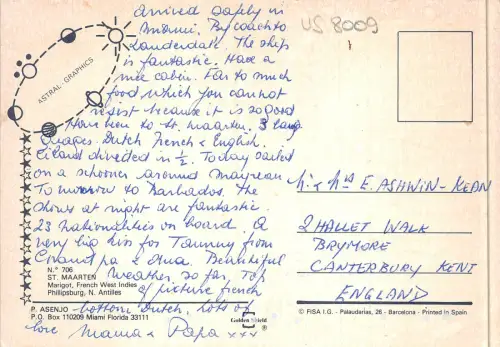 US 8009
arrived safely in
Miami. By coach to
Lauderdale. The ship
is fantastic. Have a
nice cabin. Far to much
food which you cannot
resist because it is so good
Have been to St. Maarten. 3 lang
uages. Dutch French & English.
Eiland divided in ½. Today sailed
on a schooner around Mayreau
To morrow to Barbados. The
shows at night are fantastic.
23 nationalities on board. A
very big kiss for Tammy from
Grandpa & Beautiful
weather so far. Top
of picture french
bottom Dutch. Lots of
love Mama & Papa xxx
ASTRAL-GRAPHICS
N.º 706
ST. MAARTEN
Marigot, French West Indies
Phillipsburg, N. Antilles
P. ASENJO
P.O. Box 110209 Miami Florida 33111
Golden Shield
®
Mr & Mrs E. ASHWIN-KEAN
2 HALLET WALK
BRYMORE
CANTERBURY KENT
ENGLAND
© FISA I.G. - Palaudarias, 26 - Barcelona - Printed in Spain